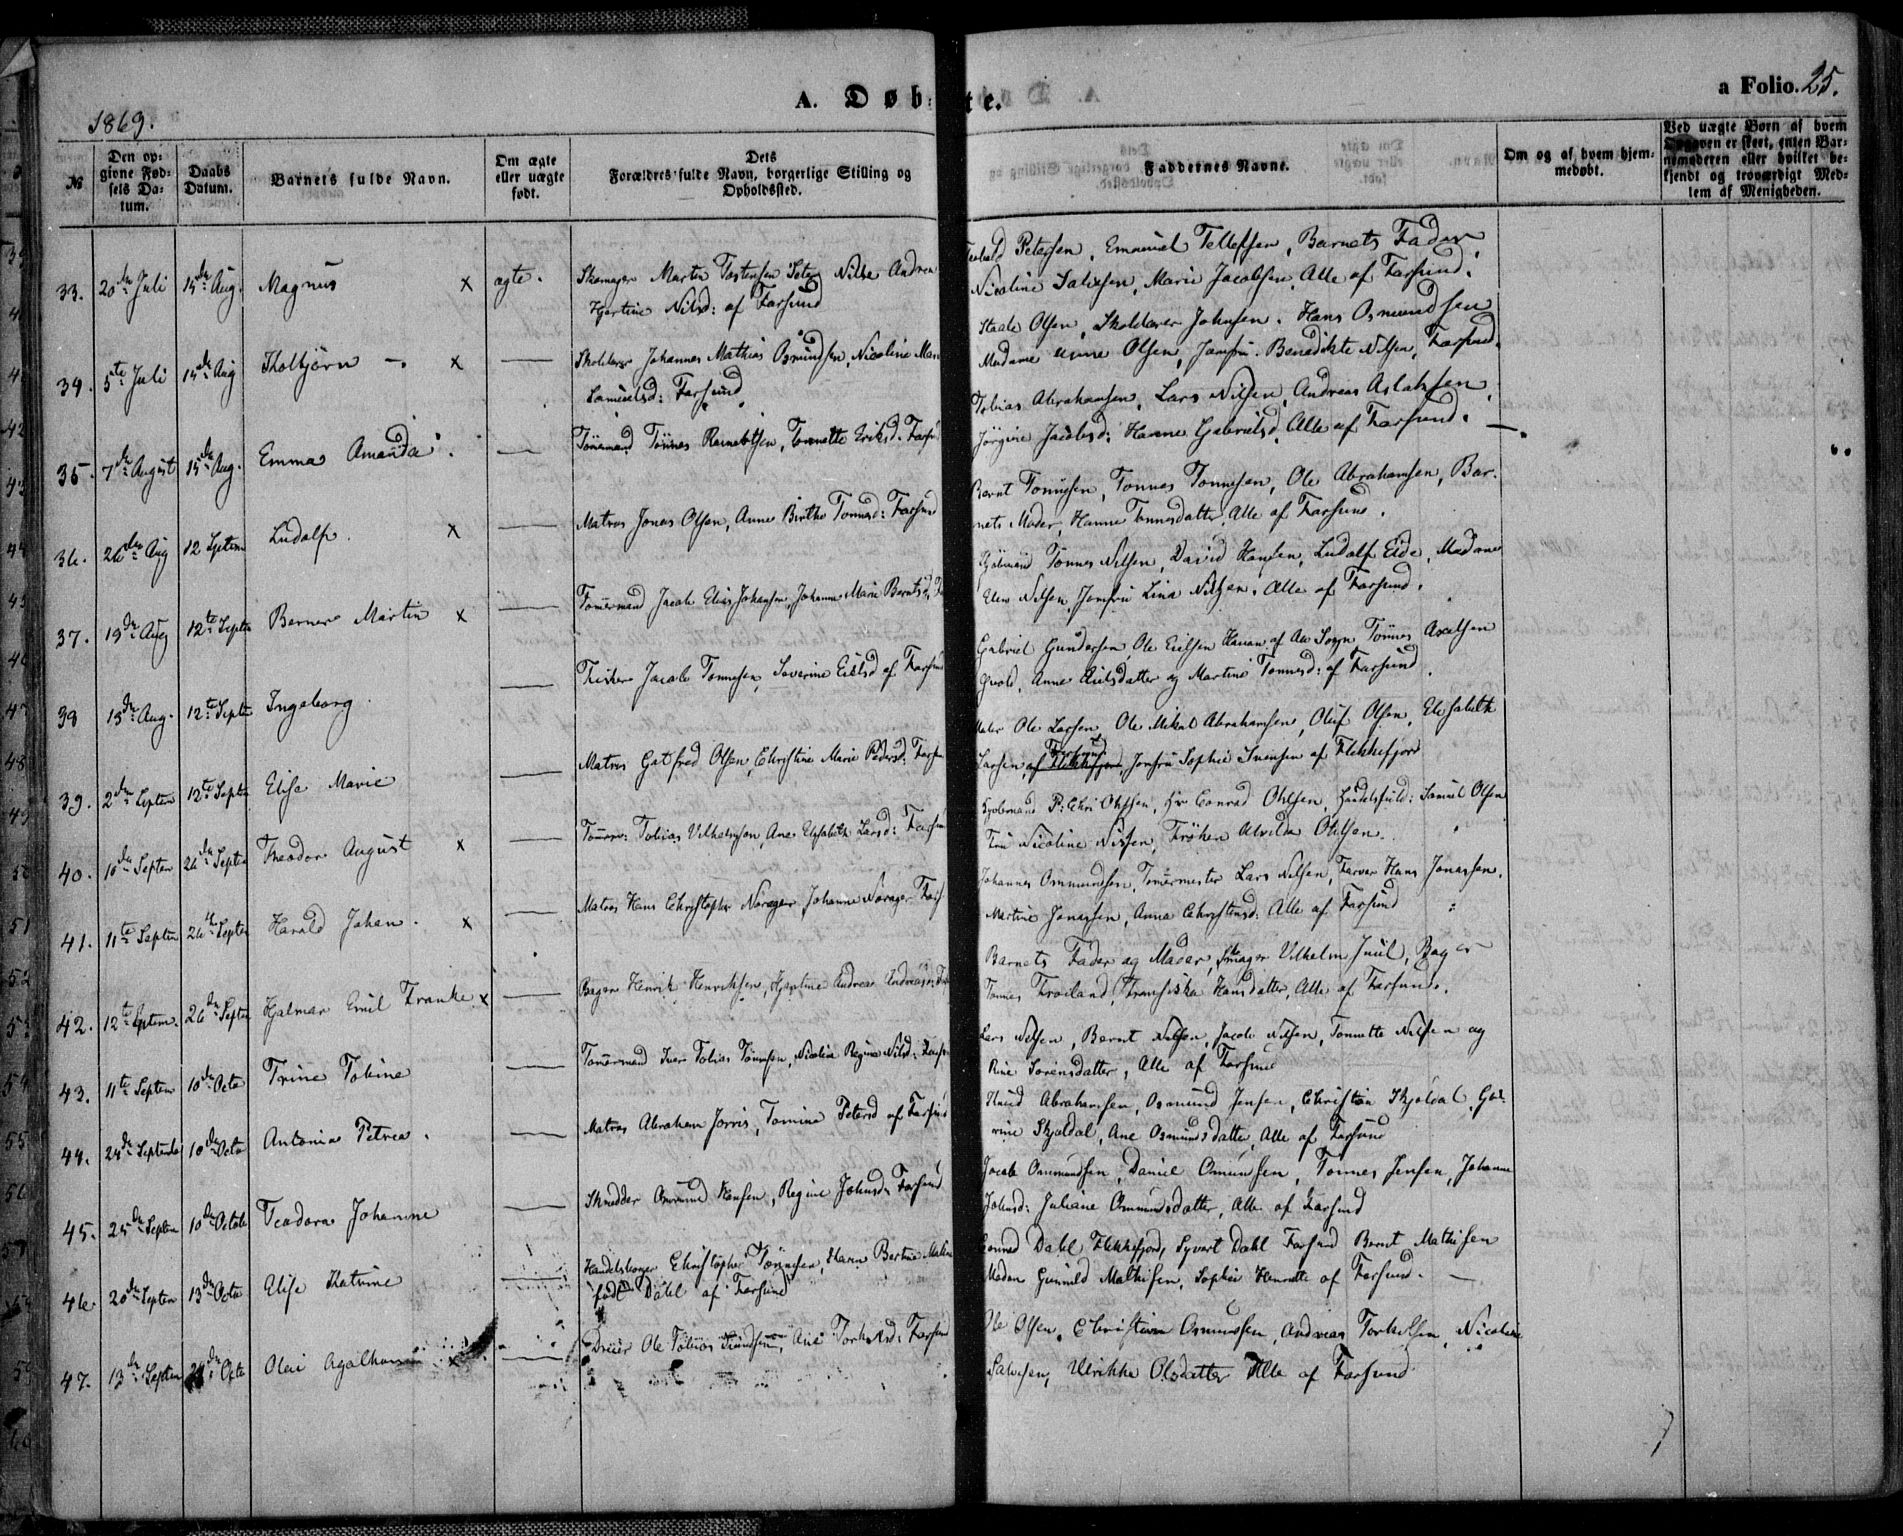 1869.
A. Døb=
te.
a Folio. 25.
№
Den op=
givne Fød=
sels Da=
tum.
Daabs
Datum.
Barnets fulde Navn.
Om ægte
eller uægte
født.
Dets
Forældres fulde Navn, borgerlige Stilling og
Opholdssted.
Faddernes Navne.
Om og af hvem hjem=
medøbt.
Ved uægte Børn af hvem
Opgaven er skeet, enten Bar=
nemoderen eller hvilket be=
kjendt og troværdigt Med=
lem af Menigheden.
33. 20de Juli 15de Aug. Magnus x ægte. Skomager Martin Nilse Andrea
Hjertine Nilsd: af Farsund
Petersen, Emanuel Tellefsen, Barnets Fader,
Nicoline Salvesen, Marie Jacobsen, Alle af Farsund.
34. 5te Juli 15de Aug Tholbjørn x — Johannes Mathias Osmundsen, Nicoline
Samuelsd: Farsund
Staale Olsen, Johnsen. Hans Osmundsen
Madame Olsen, Jomfru Benedikte Nilsen, Farsund.
35. 7de August 15de Aug. Emma Amanda. — Tømmermand Tønnes Reinertsen, Tonette Eriksd: Farsund
Tobias Abrahamsen, Lars Nilsen, Andreas Aslaksen,
Jørgine Jacobsd: Hanne Gabrielsd, Alle af Farsund.
36. 26de Aug 12 Septem Ludolf. x — Matros Jonas Olsen, Anne Birthe Tonnesd: Farsund
Bernt Tonnesen, Tonnes Tonnesen, Ole Abrahamsen, Bar=
nets Moder, Hanne Tonnesdatter, Alle af Farsund.
37. 19de Aug 12te Septem Berner Martin x — Tommermand Jacob Elias Johansen, Johanne Marie Berntsd
Tonnes Nilsen, David Hansen, Ludolf Eide, Madame
Elen Nilsen, Jomfru Lina Nilsen. Alle af Farsund.
38 15de Aug. 12te Septe Ingeborg. — Fisker Jacob Tonnesen, Severine Eilsd af Farsund
Gabriel Gundersen, Ole Eielsen Hanan af Sogn Tønnes Axelsen
Anne Eielsdatter og Martine Tonnesd: af Farsund.
39. 2den Septem 12te Septe Elise Marie — Matros Gotfred Olsen, Christine Marie Pedersd: Farsun
Ole Larsen, Ole Mikal Abrahamsen, Oluf Olsen, Elisabeth
Larsen, af Flekkefjord Farsund, Jomfru Sophie Svensen af Flekkefjord
40. 10de Septem 26de Septe Theodor August x — Tømrer: Tobias Vilhelmsen, Ane Elisabeth Larsd: Farsun
Kjøbmand P: Chri Ohlsen, Hr Conrad Ohlsen, Handelsfuld: Samuel Olsen
Fru Nicoline Nilsen, Frøken Alvilda Ohlsen.
41. 11te Septem 26de Septem Harald Johan. x — Matros Hans Christopher Noreger Johanne Noreger Fars
Johannes Ommundsen, Tømermester Lars Nilsen, Farver Hans Jonassen,
Martine Jonassen, Anna Christensd: Alle af Farsund
42. 12te Septem. 26de Septem Hjalmar Emil Franke x — Bager Henrik Henriksen, Andrea
Barnets Fader og Moder, Vilhelm Juul, Bager
Tonnes Froiland, Fransiska Hansdatter, Alle af Farsund.
43. 11te Septem 10de Octo Trine Tobine — Tommermand Iver Tobias Tonnesen, Nicoline Regine Nilsd: Farsu
Lars Nilsen, Bernt Nilsen, Jacob Nilsen, Tonnette Nilsen og
Rine Sorensdatter, Alle af Farsund
44. 24de Septembr 10de Octo Antonia Petrea. — Matros Abraham Jorris, Tomine Petersd af Farsund
Knud Abrahamsen, Osmund Jensen, Christian Skjoldal, Gu=
rine Skjoldal, Ane Osmundsdatter, Alle af Farsund
45. 25de Septem 10de Octobr Teodora Johanne — Skredder Osmund Hansen, Regine Johnsd: Farsund
Jacob Ommundsen, Daniel Omundsen, Tonnes Jensen, Johanne
Johnsd: Juliane Ommundsdatter, Alle af Farsund
46. 20de Septem 13de Octo Elise Katrine — Handelsborger Christopher Tonnesen, Karen Bertine
født Dahl af Farsund
Dahl Flekkefjord, Syvert Dahl Farsund Bernt Mathisen
Madam Gunnild Mathisen, Sophie Henrette af Farsund.
47. 13de Septem 24de Octo Olai — Dreier Ole Tobias Ane Torkelsd: Farsund
Ole Olsen, Christian Osmundsen, Andreas Torkelsen, Nicoline
Salvesen, Ulrikke Olsdatter Alle af Farsund